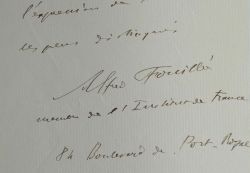 l'expression de
les plus distingués
Alfred Fouillé
membre de l'Institut de France
84 Boulevard de Port-Royal